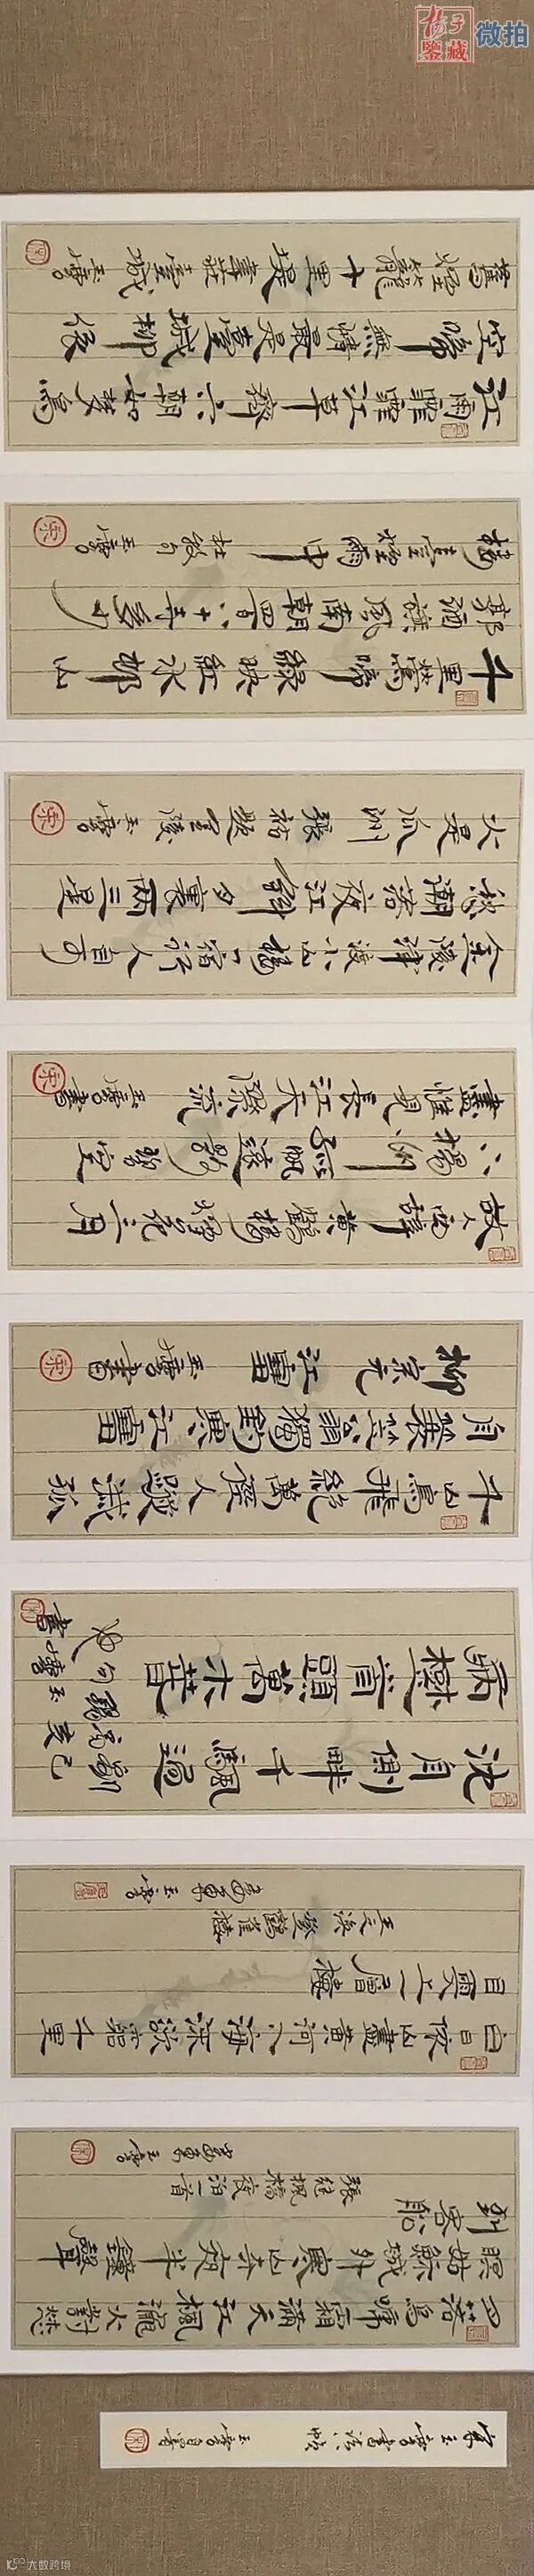 揚子
鑒藏
微拍
宋玉麐書法帖 玉麐自署
月落烏啼霜滿天江楓漁火對愁
眠姑蘇城外寒山寺夜半鐘聲
到客船
張繼楓橋夜泊一首
玉麐
白日依山盡黃河入海流欲窮千里
目更上一層樓
王之渙登鸛雀樓
玉麐
沈舟側畔千帆過
病樹前頭萬木春
己亥
劉禹錫句玉麐書
千山鳥飛絕萬徑人蹤滅孤
舟蓑笠翁獨釣寒江雪
柳宗元江雪 玉麐書
故人西辭黃鶴樓煙花三月
下揚州孤帆遠影碧空
盡惟見長江天際流 玉麐書
金陵津渡小山樓一宿行人自可
愁潮落夜江斜月裏兩三星
火是瓜洲 張祜題金陵 玉麐
千里鶯啼綠映紅水邨山
郭酒旗風南朝四百八十寺多少
樓臺煙雨中 杜牧句 玉麐
江雨霏霏江草齊六朝如夢鳥
空啼無情最是臺城柳依
舊煙籠十里堤 韋莊臺城 玉麐
大数跨境